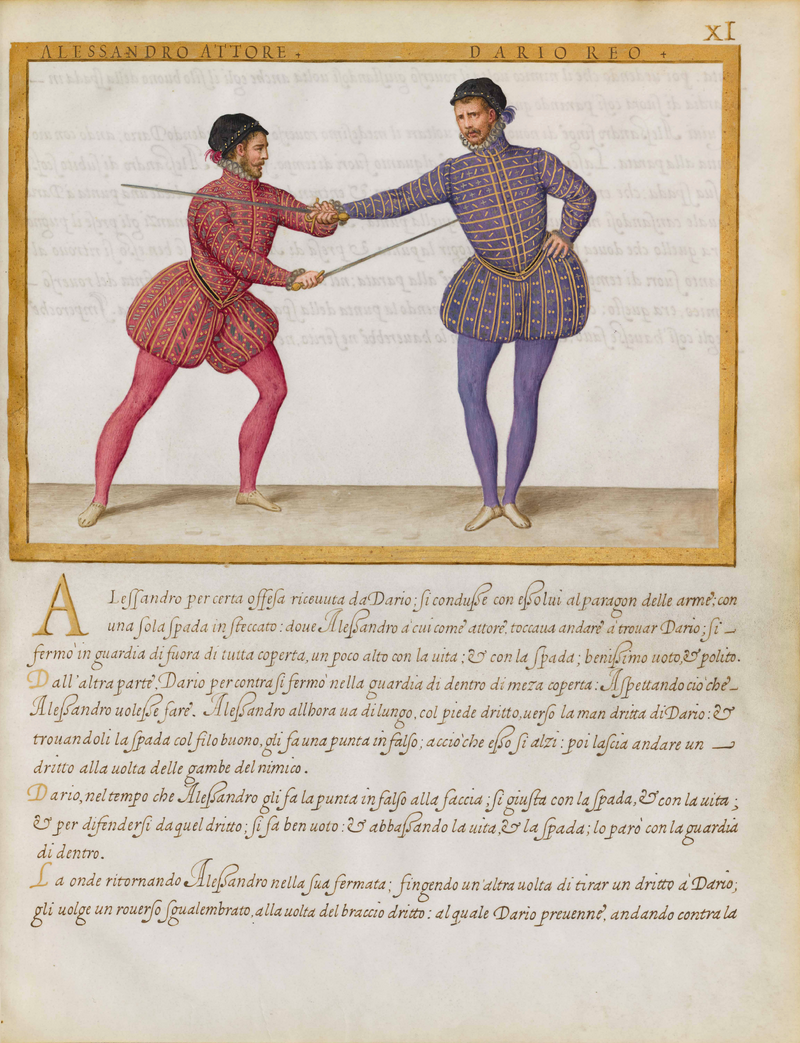 XI
ALESSANDRO ATTORE +
DARIO REO +
ALeſſandro per certa offeſa riceuuta da Dario; ſi conduſſe con eſſo lui al paragon delle arme; con
una ſola ſpada in ſteccato: doue Aleſſandro à cui come attore, toccaua andare à trouar Dario; ſi
fermò in guardia di fuora di tutta coperta, un poco alto con la uita; & con la ſpada; beniſſimo uoto, & polito.
Dall'altra parte, Dario per contra ſi fermò nella guardia di dentro di meza coperta: Aſpettando ciò che
Aleſſandro uoleſſe fare. Aleſſandro allhora ua di lungo, col piede dritto, uerſo la man dritta di Dario: &
trouandoli la ſpada col filo buono, gli fa una punta in falſo; acciò che eſſo ſi alzi: poi laſcia andare un
dritto alla uolta delle gambe del nimico.
Dario, nel tempo che Aleſſandro gli fa la punta in falſo alla faccia; ſi giuſta con la ſpada, & con la uita;
& per difenderſi da quel dritto; ſi fa ben uoto: & abbaſſando la uita, & la ſpada; lo parò con la guardia
di dentro.
La onde ritornando Aleſſandro nella ſua fermata; fingendo un'altra uolta di tirar un dritto à Dario;
gli uolge un rouerſo ſgualembrato, alla uolta del braccio dritto: al quale Dario preuenne, andando contra la